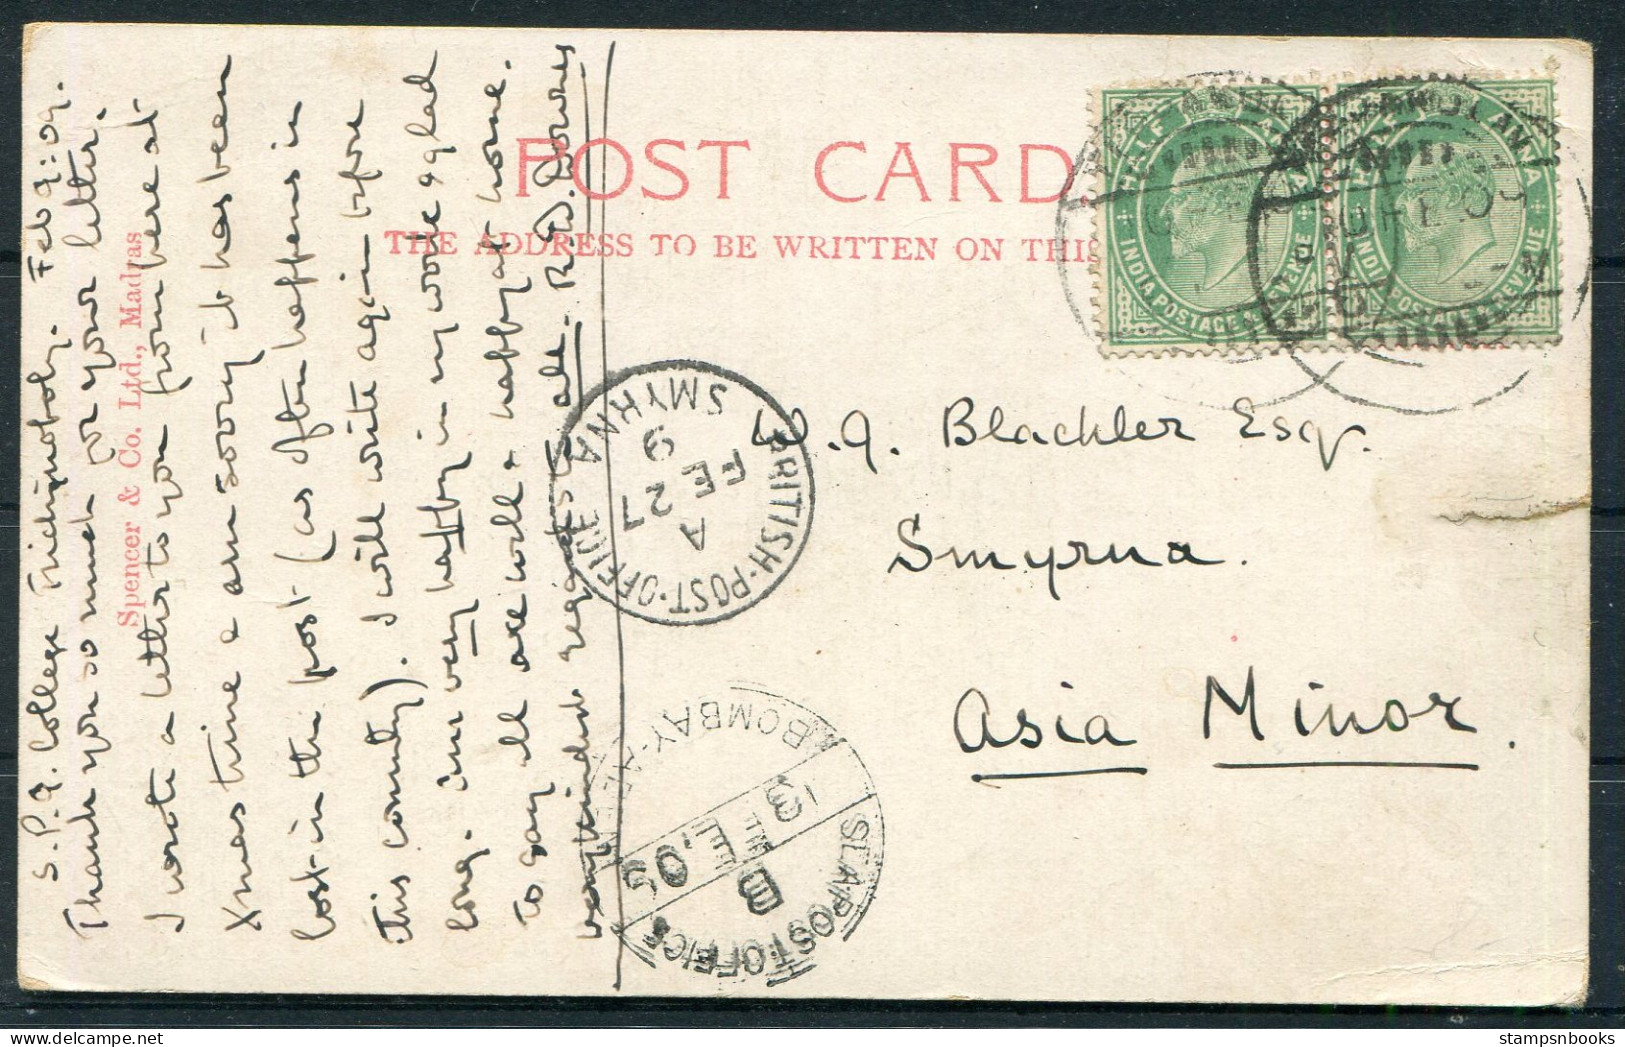 POST CARD
THE ADDRESS TO BE WRITTEN ON THIS
Spencer & Co. Ltd., Madras
S.P.G. College Trichinopoly. Feb 9: 09.
Thank you so much for your letter.
I wrote a letter to you from here at
Xmas time & am sorry it has been
lost in the post (as often happens in
this country). I will write again before
long. I am very happy in my work & glad
to say all are well & happy at home.
very kindest regards to all.
W. G. Blackler Esq.
Smyrna.
Asia Minor.
HALF ANNA
INDIA POSTAGE & REVENUE
HALF ANNA
INDIA POSTAGE & REVENUE
BRITISH·POST·OFFICE SMYRNA
A
FE 27
9
SEA POST·OFFICE
B
FE. 09
13
BOMBAY-ADEN
stampsnbooks
www.delcampe.net